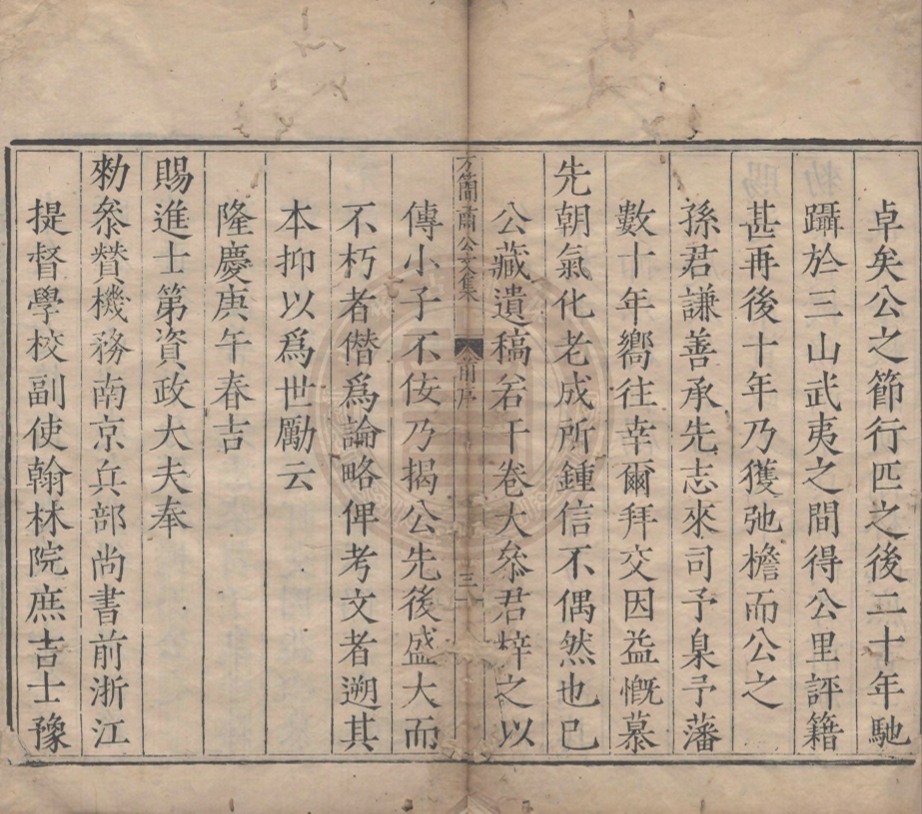 卓矣公之節行匹之後二十年馳
躡於三山武夷之間得公里評籍
甚再後十年乃獲弛檐而公之
孫君謙善承先志來司予臬予藩
數十年嚮往幸爾拜交因益慨慕
先朝氣化老成所鍾信不偶然也已
公藏遺稿若干卷大叅君梓之以
方簡肅公文集 前序 三
傳小子不佞乃揭公先後盛大而
不朽者僭爲論略俾考文者遡其
本抑以爲世勵云
隆慶庚午春吉
賜進士第資政大夫奉
勑叅贊機務南京兵部尚書前浙江
提督學校副使翰林院庶吉士豫